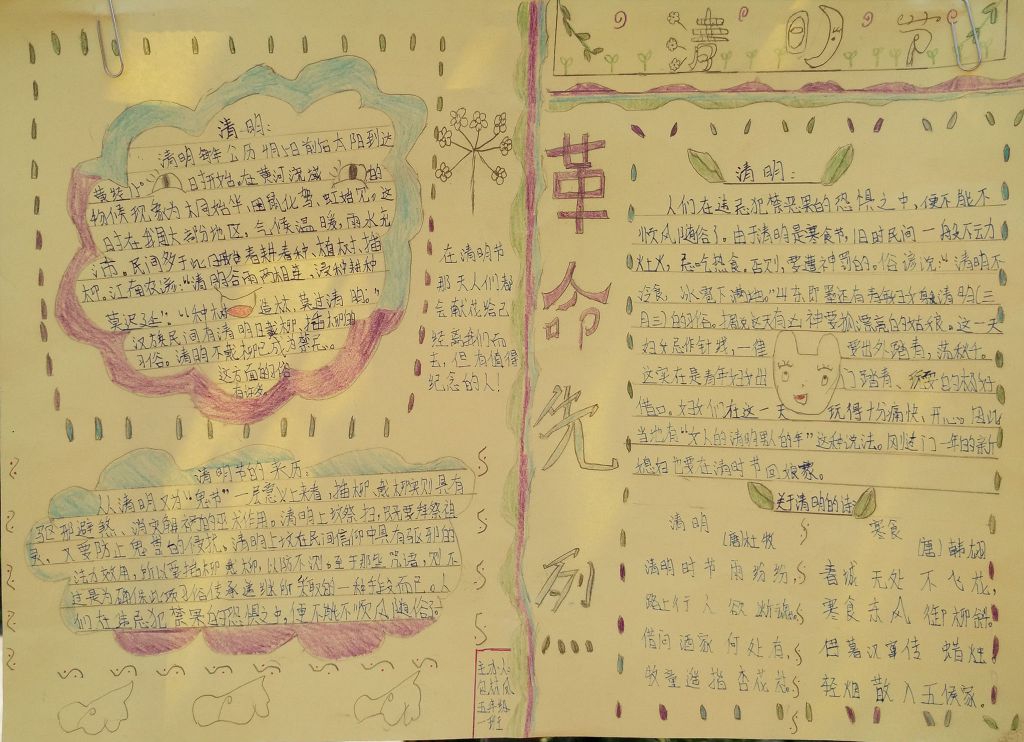 清明节
清明:
清明每年公历4月5日前后太阳到达
黄经15°日开始。在黄河流域的
物侯现象为桐始华,田鼠化驾,虹始见。这
日时在我国大部分地区,气候温暖,雨水
民间多于此日
柳。江南农谚:“清明谷雨两相连,浸种耕种
莫迟延”。“植树造林,莫过清明。”
汉族民间有清明日戴柳、插柳的
习俗。清明不戴柳已成为禁忌。
这方面的习俗
有许多。
在清明节
那天人们都
会献花给己
经离我们而
去,但有值得
纪念的人!
清明节的来历:
从清明又为“鬼节”一层意义上来看,插柳、戴柳实则具有
驱邪避煞、消灾解祸的巫术作用。清明上坟祭扫,既要拜祭祖
灵,又要防止鬼害的侵扰,清明上坟在民间信仰中具有驱邪的
法力效用,所以要插柳戴柳,以防不测。至于那些咒语,则不
过是为确保此项习俗传承连继所采取的一种手段而已。人
们在违忌犯禁果的恐惧之中,便不能不顺风随俗了。
主办人:
五年级
一班
革命先列
清明:
人们在违忌犯禁恶果的恐惧之中,便不能不
顺风随俗了。由于清明是寒食节,旧时民间一般不动
灶火,忌吃热食,否则,要遭神罚的。俗谚说:“清明不
冷食,冰雹下满地。”山东即墨还有青年妇女躲清明(三
月三)的习俗。据说这天有凶神要抓漂亮的姑娘。这一天
妇女忌作针线,一律要出外踏青,荡秋千。
这实在是青年妇女出门踏青、玩耍的极好
借口。妇女们在这一天玩得十分痛快、开心。因此
当地有“女人的清明男人的年”这种说法。刚过门一年的新
媳妇也要在清时节回娘家。
关于清明的诗
清明
(唐)杜牧
清明时节雨纷纷,
路上行人欲断魂。
借问酒家何处有,
牧童遥指杏花村。
寒食
(唐)韩翃
春城无处不飞花,
寒食东风御柳斜。
日暮汉宫传蜡烛,
轻烟散入五侯家。